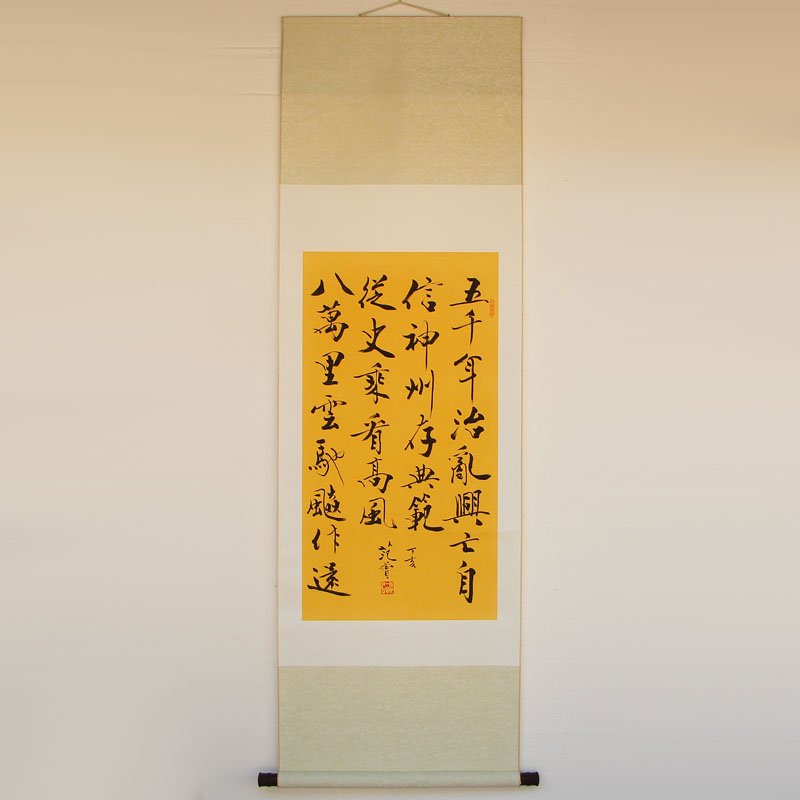 五千年治亂興亡自
信神州存典範
八萬里雲馳飈作遠
從史乘看高風
丁亥
范